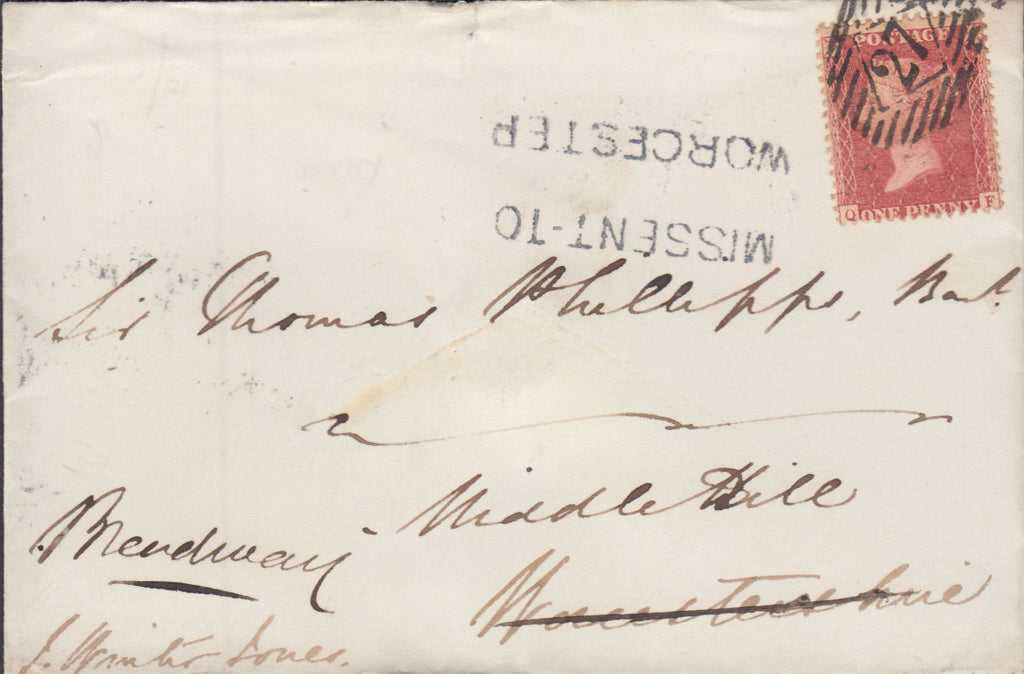 POSTAGE
27
Q ONE PENNY F
MISSENT-TO
WORCESTER
Sir Thomas Phillipps, Bart.
Middle Hill
Broadway
Worcestershire
J. Winter Jones.